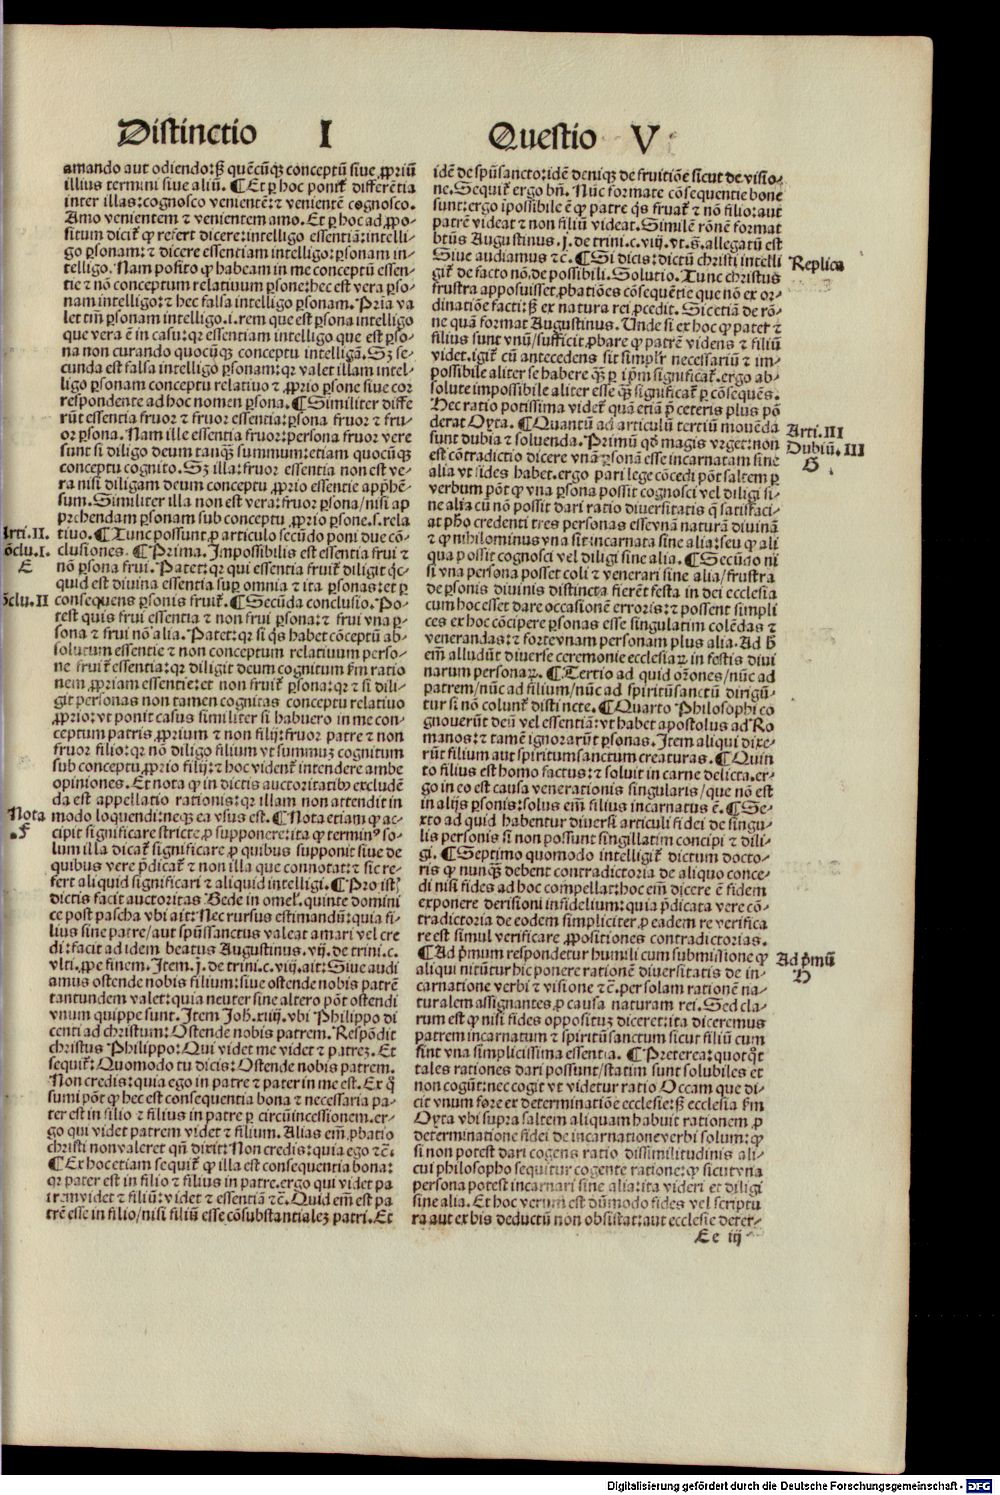 Distinctio I
Questio V
amando aut odiendo: sꝫ quēcūqꝫ conceptū siue ꝓpriū
illius termini siue aliū. ¶ Et ꝑ hoc ponit̉ differētia
inter illas: cognosco venientē: ⁊ venientē cognosco.
Amo venientem ⁊ venientem amo. Et ꝑ hoc ad ꝓpo-
situm dicit̉ ꝙ refert dicere: intelligo essentiā: intelli-
go ꝑsonam: ⁊ dicere essentiam intelligo: ꝑsonam in-
telligo. Nam posito ꝙ habeam in me conceptū essen-
tie ⁊ nō conceptum relatiuum ꝑsone: hec est vera ꝑso-
nam intelligo: ⁊ hec falsa intelligo ꝑsonam. Pria va
let tm̄ ꝑsonam intelligo .i. rem que est ꝑsona intelligo
que vera ē in casu: qꝛ essentiam intelligo que est ꝑso-
na non curando quocūqꝫ conceptu intelligā. Sꝫ se-
cunda est falsa intelligo ꝑsonam: qꝛ valet illam intel-
ligo ꝑsonam conceptu relatiuo ⁊ ꝓprio ꝑsone siue cor
respondente ad hoc nomen ꝑsona. ¶ Similiter diffe
rūt essentia fruor ⁊ fruor essentia: ꝑsona fruor ⁊ fru-
or ꝑsona. Nam ille essentia fruor: persona fruor vere
sunt si diligo deum tanqꝫ summum: etiam quocūqꝫ
conceptu cognito. Sꝫ illa: fruor essentia non est ve-
ra nisi diligam deum conceptu ꝓprio essentie apprehē-
sum. Similiter illa non est vera: fruor ꝑsona/ nisi ap
prehendam ꝑsonam sub conceptu ꝓprio ꝑsone .s. rela
tiuo. ¶ Tunc possunt ꝓ articulo secūdo poni due cō-
clusiones. ¶ Prima. Impossibilis est essentia frui ⁊
nō ꝑsona frui. Patet: qꝛ qui essentia fruit̉ diligit qc̄-
quid est diuina essentia suꝑ omnia ⁊ ita ꝑsonas: et ꝑ
consequens ꝑsonis fruit̉. ¶ Secūda conclusio. Po-
test quis frui essentia ⁊ non frui ꝑsona: ⁊ frui vna ꝑ-
sona ⁊ frui nō alia. Patet: qꝛ si q̄s habet cōceptū ab-
solutum essentie ⁊ non conceptum relatiuum perso-
ne fruit̉ essentia: qꝛ diligit deum cognitum ẜm ratio
nem ꝓpriam essentie: et non fruit̉ ꝑsona: qꝛ ⁊ si dili-
git personas non tamen cognitas conceptu relatiuo
ꝓprio: vt ponit casus similiter si habuero in me con-
ceptum patris ꝓprium ⁊ non filij: fruor patre ⁊ non
fruor filio: qꝛ nō diligo filium vt summuꝫ cognitum
sub conceptu ꝓprio filij: ⁊ hoc vident̉ intendere ambe
opiniones. Et nota ꝙ in dictis auctoritatibꝰ excludē
da est appellatio rationis: qꝛ illam non attendit in
modo loquendi: neqꝫ ea vsus est. ¶ Nota etiam ꝙ ac-
cipit significare stricte ꝓ supponere: ita ꝙ terminꝰ so-
lum illa dicat̉ significare ꝓ quibus supponit siue de
quibus vere p̄dicat̉ ⁊ non illa que connotat: ⁊ sic re-
fert aliquid significari ⁊ aliquid intelligi. ¶ Pro istꝭ
dictis facit auctoritas Bede in omeľ. quinte domini
ce post pascha vbi ait: Nec rursus estimandū: quia fi-
lius sine patre/ aut spūssanctus valeat amari vel cre
di: facit ad idem beatus Augustinus. vij. de trini. c.
vlti. ꝓpe finem. Item .j. de trini. c. viij. ait: Siue audi
amus ostende nobis filium: siue ostende nobis patrē
tantundem valet: quia neuter sine altero pōt ostendi
vnum quippe sunt. Item Joh. xiiij. vbi Philippo di
centi ad christum: Ostende nobis patrem. Respōdit
christus Philippo: Qui videt me videt ⁊ patreꝫ. Et
sequit̉: Quomodo tu dicis: Ostende nobis patrem.
Non credis: quia ego in patre ⁊ pater in me est. Ex q̄
sumi pōt ꝙ hec est consequentia bona ⁊ necessaria pa-
ter est in filio ⁊ filius in patre ꝑ circūincessionem. er-
go qui videt patrem videt ⁊ filium. Alias em̄ ꝓbatio
christi non valeret qn̄ dixit: Non credis: quia ego ⁊c̄.
¶ Ex hoc etiam sequit̉ ꝙ illa est consequentia bona:
qꝛ pater est in filio ⁊ filius in patre. ergo qui videt pa
trem videt ⁊ filiū: videt ⁊ essentiā ⁊c̄. Quid em̄ est pa
trē esse in filio/ nisi filiū esse cōsubstantialeꝫ patri. Et
Arti. II.
cōclu. I.
E
cōclu. II
Nota
F
idē de spūsancto: idē deniqꝫ de fruitiōe sicut de visio-
ne. Sequit̉ ergo bn̄. Nūc formate cōsequentie bone
sunt: ergo īpossibile ē ꝙ patre q̄s fruat̉ ⁊ nō filio: aut
patrē videat ⁊ non filiū videat. Similē rōnē format
btūs Augustinus .j. de trini. c. viij. vt .s̄. allegatū est
Siue audiamus ⁊c̄. ¶ Si dicis: dictū christi intelli
git̉ de facto nō de possibili. Solutio. Tunc christus
frustra apposuisset ꝓbatiōes cōsequētie que nō ex or-
dinatiōe facti: sꝫ ex natura rei ꝓcedit. Sic etiā de rō-
ne quā format Augustinus. Unde si ex hoc ꝙ pater ⁊
filius sunt vnū/ sufficit ꝓbare ꝙ patrē videns ⁊ filiū
videt. igit̉ cū antecedens sit simpľr necessariū ⁊ im-
possibile aliter se habere qꝫ ꝑ ip̄m significat̉. ergo ab-
solute impossibile aliter esse qꝫ significat̉ ꝑ cōsequēs.
Hec ratio potissima videt̉ quā etiā p̄ ceteris plus pō
derat Oyta. ¶ Quantū ad articulū tertiū mouēda
sunt dubia ⁊ soluenda. Primū qd̄ magis vrget: non
est cōtradictio dicere vnā ꝑsonā esse incarnatam sine
alia vt fides habet. ergo pari lege cōcedi pōt saltem ꝑ
verbum pōt ꝙ vna ꝑsona possit cognosci vel diligi si-
ne alia cū nō possit dari ratio diuersitatis q̄ satisfaci-
at ꝓbo credenti tres personas esse vnā naturā diuinā
⁊ ꝙ nihilominus vna sit incarnata sine alia: seu ꝙ ali
qua possit cognosci vel diligi sine alia. ¶ Secūdo ni
si vna persona posset coli ⁊ venerari sine alia/ frustra
de ꝑsonis diuinis distincta fierēt festa in dei ecclesia
cum hoc esset dare occasionē erroris: ⁊ possent simpli
ces ex hoc cōcipere ꝑsonas esse singulatim colēdas ⁊
venerandas: ⁊ forte vnam personam plus alia. Ad h̄
em̄ alludūt diuerse ceremonie ecclesiaꝝ in festis diui
narum personaꝝ. ¶ Tertio ad quid orōnes/ nūc ad
patrem/ nūc ad filium/ nūc ad spiritūsanctū dirigū-
tur si nō colunt̉ distincte. ¶ Quarto Philosophi co
gnouerūt deū vel essentiā: vt habet apostolus ad Ro
manos: ⁊ tamē ignorarūt ꝑsonas. Item aliqui dixe-
rūt filium aut spiritumsanctum creaturas. ¶ Quin
to filius est homo factus: ⁊ soluit in carne delicta. er-
go in eo est causa venerationis singularis/ que nō est
in alijs ꝑsonis: solus em̄ filius incarnatus ē. ¶ Se-
xto ad quid habentur diuersi articuli fidei de singu-
lis personis si non possunt singillatim concipi ⁊ dili-
gi. ¶ Septimo quomodo intelligit̉ dictum docto-
ris ꝙ nunqꝫ debent contradictoria de aliquo conce-
di nisi fides ad hoc compellat: hoc em̄ dicere ē fidem
exponere derisioni infidelium: quia p̄dicata vere cō-
tradictoria de eodem simpliciter ꝓ eadem re verifica
re est simul verificare ꝓpositiones contradictorias.
¶ Ad p̄mum respondetur humili cum submissione ꝙ
aliqui nitūtur hic ponere rationē diuersitatis de in-
carnatione verbi ⁊ visione ⁊c̄. per solam rationem na-
turalem assignantes ꝓ causa naturam rei. Sed cla-
rum est ꝙ nisi fides oppositum diceret: ita diceremus
patrem incarnatum ⁊ spiritūsanctum sicut filiū cum
sint vna simplicissima essentia. ¶ Preterea: quotqͦt
tales rationes dari possunt/ statim sunt solubiles et
non cogūt: nec cogit vt videtur ratio Occam que di-
cit vnum fore ex determinatiōe ecclesie: sꝫ ecclesia ẜm
Oyta vbi supra saltem aliquam habuit rationem ꝓ
determinatione fidei de incarnatione verbi solum: ꝙ
si non potest dari cogens ratio dissimilitudinis ali-
cui philosopho sequitur cogente ratione: ꝙ sicut vna
persona potest incarnari sine alia: ita videri et diligi
sine alia. Et hoc verum est dūmodo fides vel scriptu
ra aut ex his deductū non obsistat: aut ecclesie deter-
Replica
Arti. III
Dubiū. III
G
Ad p̄mū
H
Ee iij
Digitalisierung gefördert durch die Deutsche Forschungsgemeinschaft - DFG